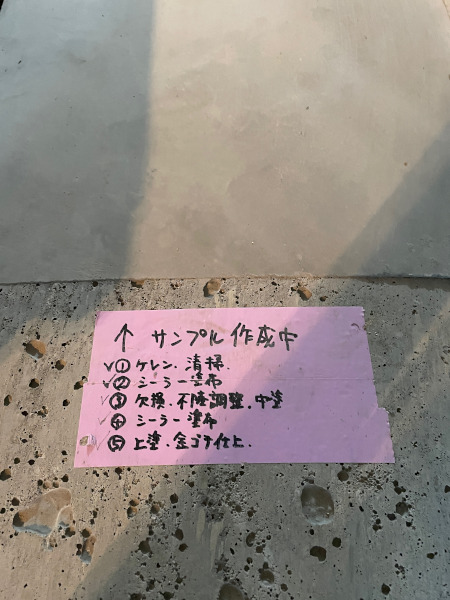 ↑ サンプル作成中
✓① ケレン. 清掃.
✓② シーラー塗布
✓③ 欠損. 不陸調整. 中塗
✓④ シーラー塗布
✓⑤ 上塗. 金ゴテ仕上.